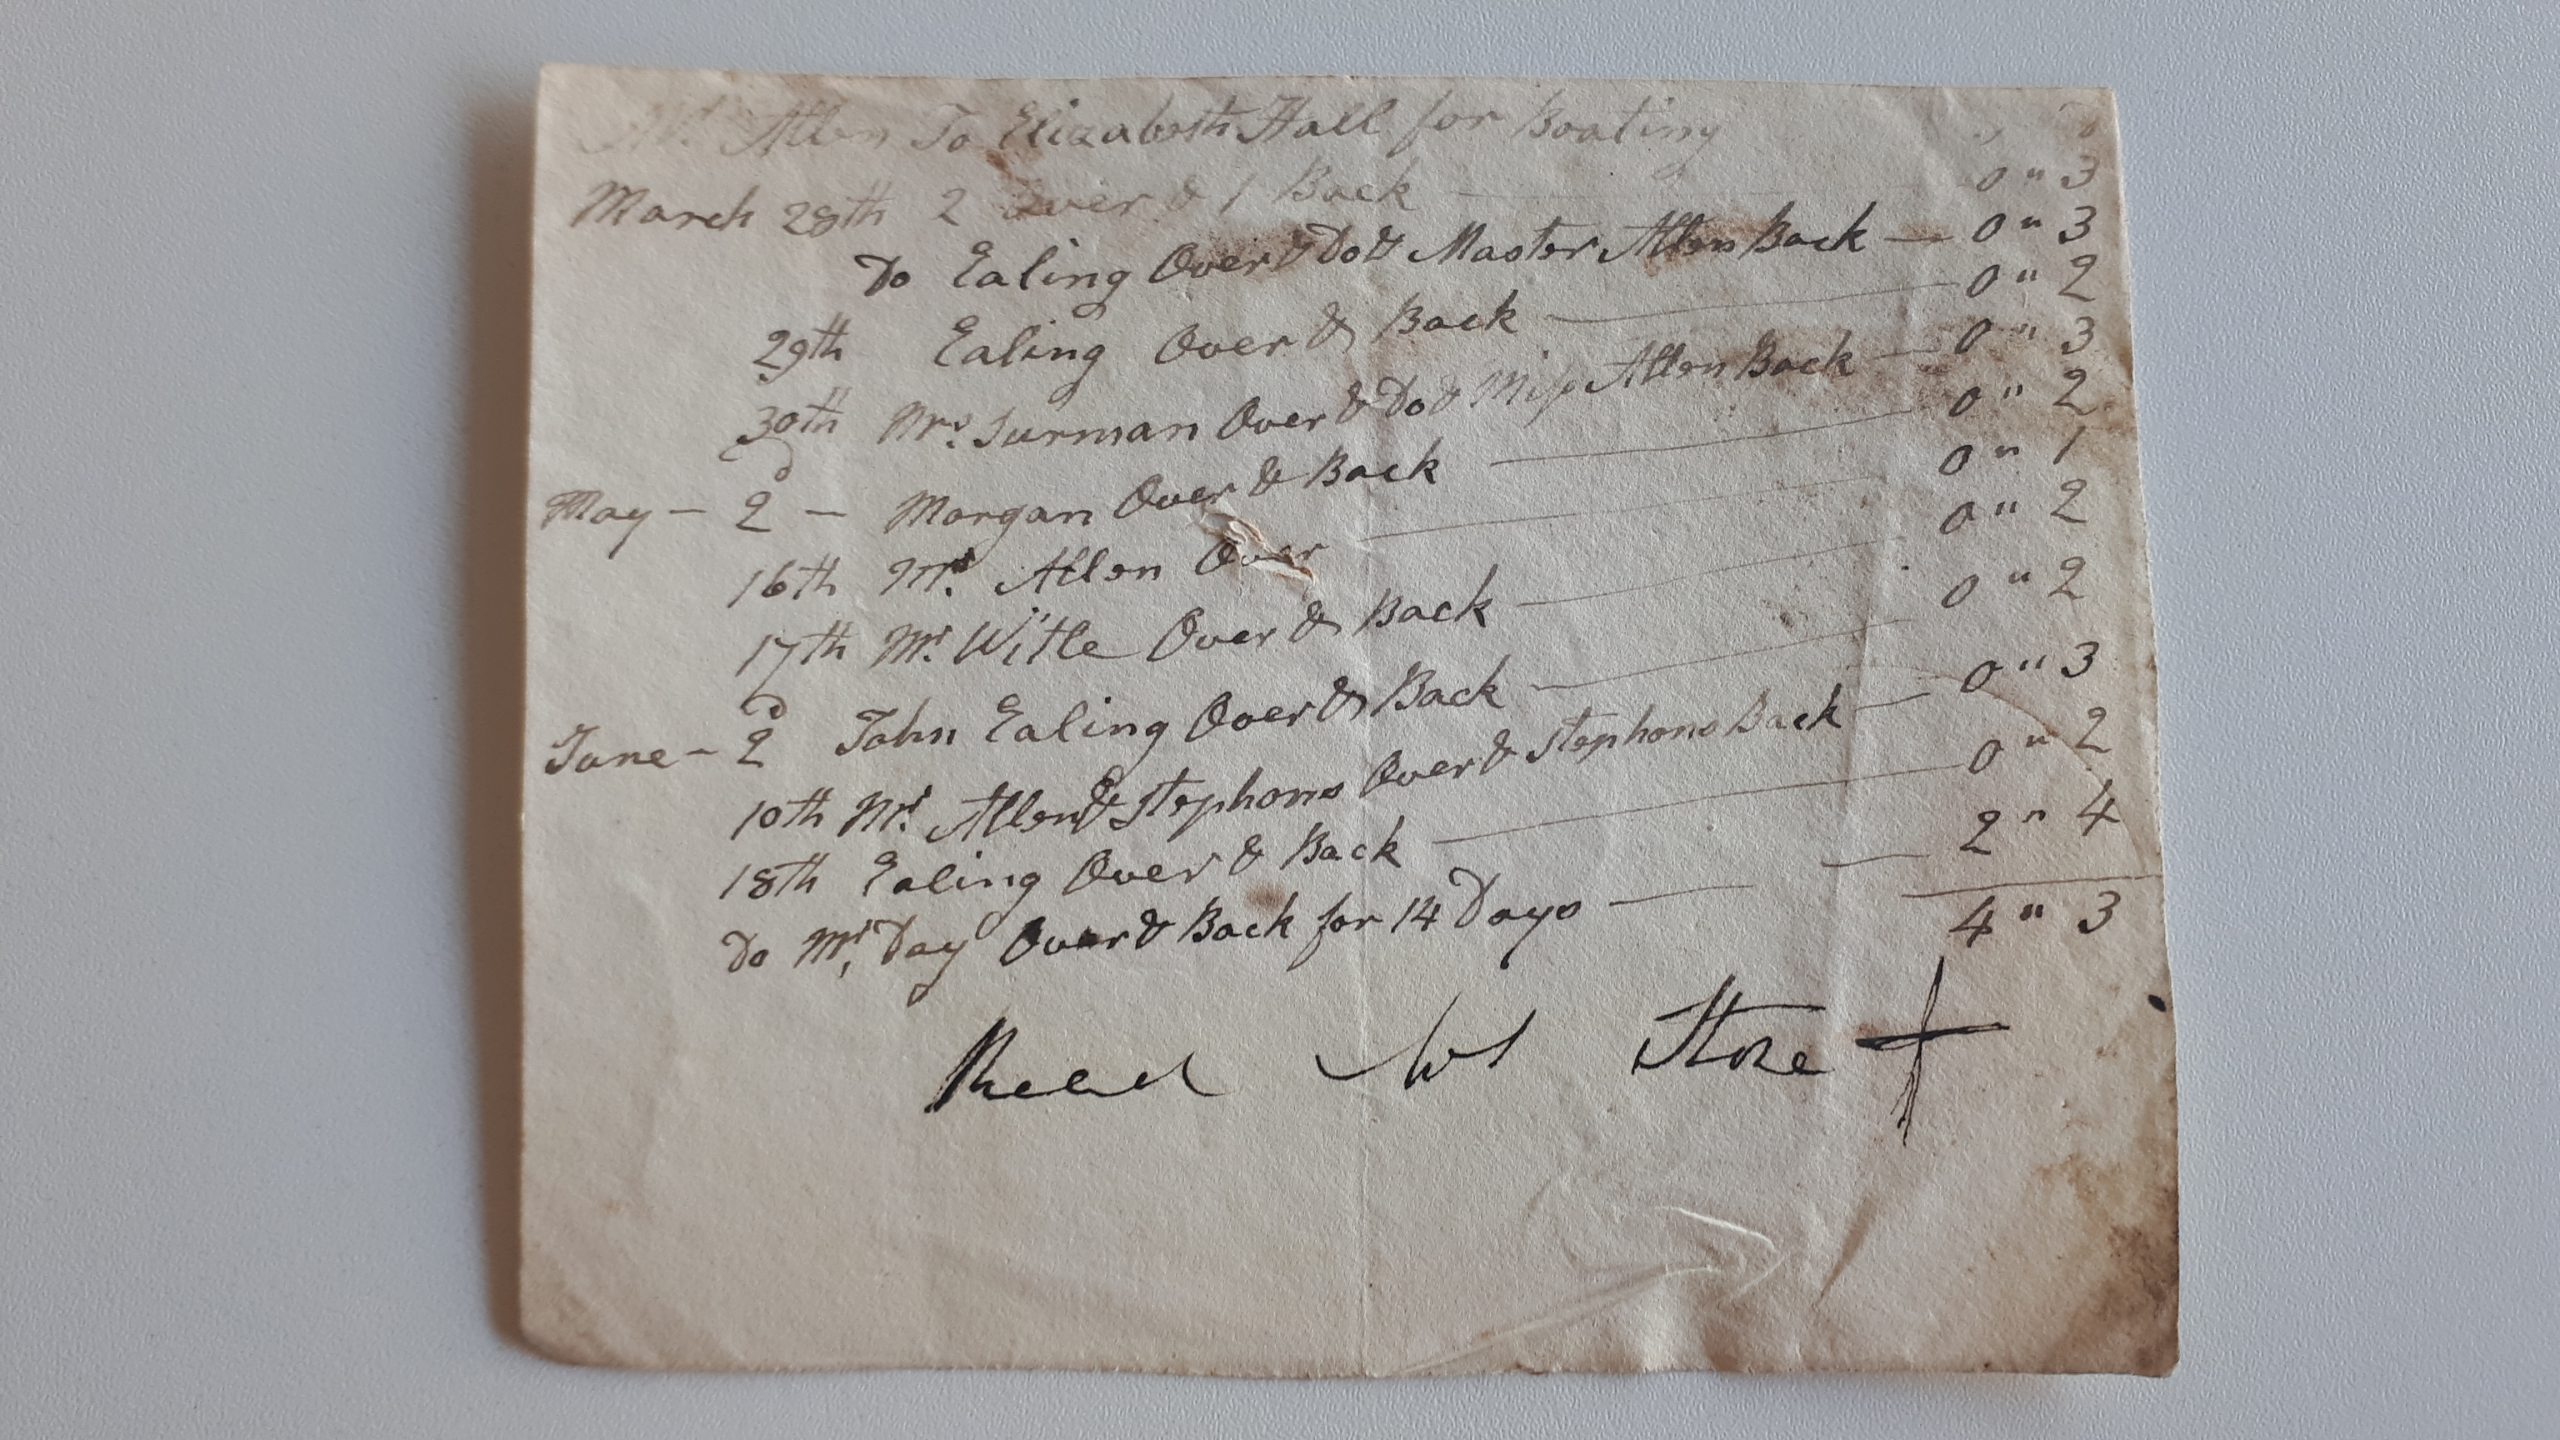 Mr. Allen To Elizabeth Hall for Boating s d
March 28th 2 Over & 1 Back — 0 " 3
Do Ealing Over & Do & Master Allen Back — 0 " 3
29th Ealing Over & Back — 0 " 2
30th Mrs. Surman Over & Do & Miss Allen Back — 0 " 3
May – 2d – Morgan Over & Back — 0 " 2
16th Mr. Allen Over — 0 " 1
17th Mr. Witle Over & Back — 0 " 2
June – 2d John Ealing Over & Back — 0 " 2
10th Mr. Allen & Stephens Over & Stephens Back — 0 " 3
18th Ealing Over & Back — 0 " 2
Do Mr. Day Over & Back for 14 Days — 2 " 4
4 " 3